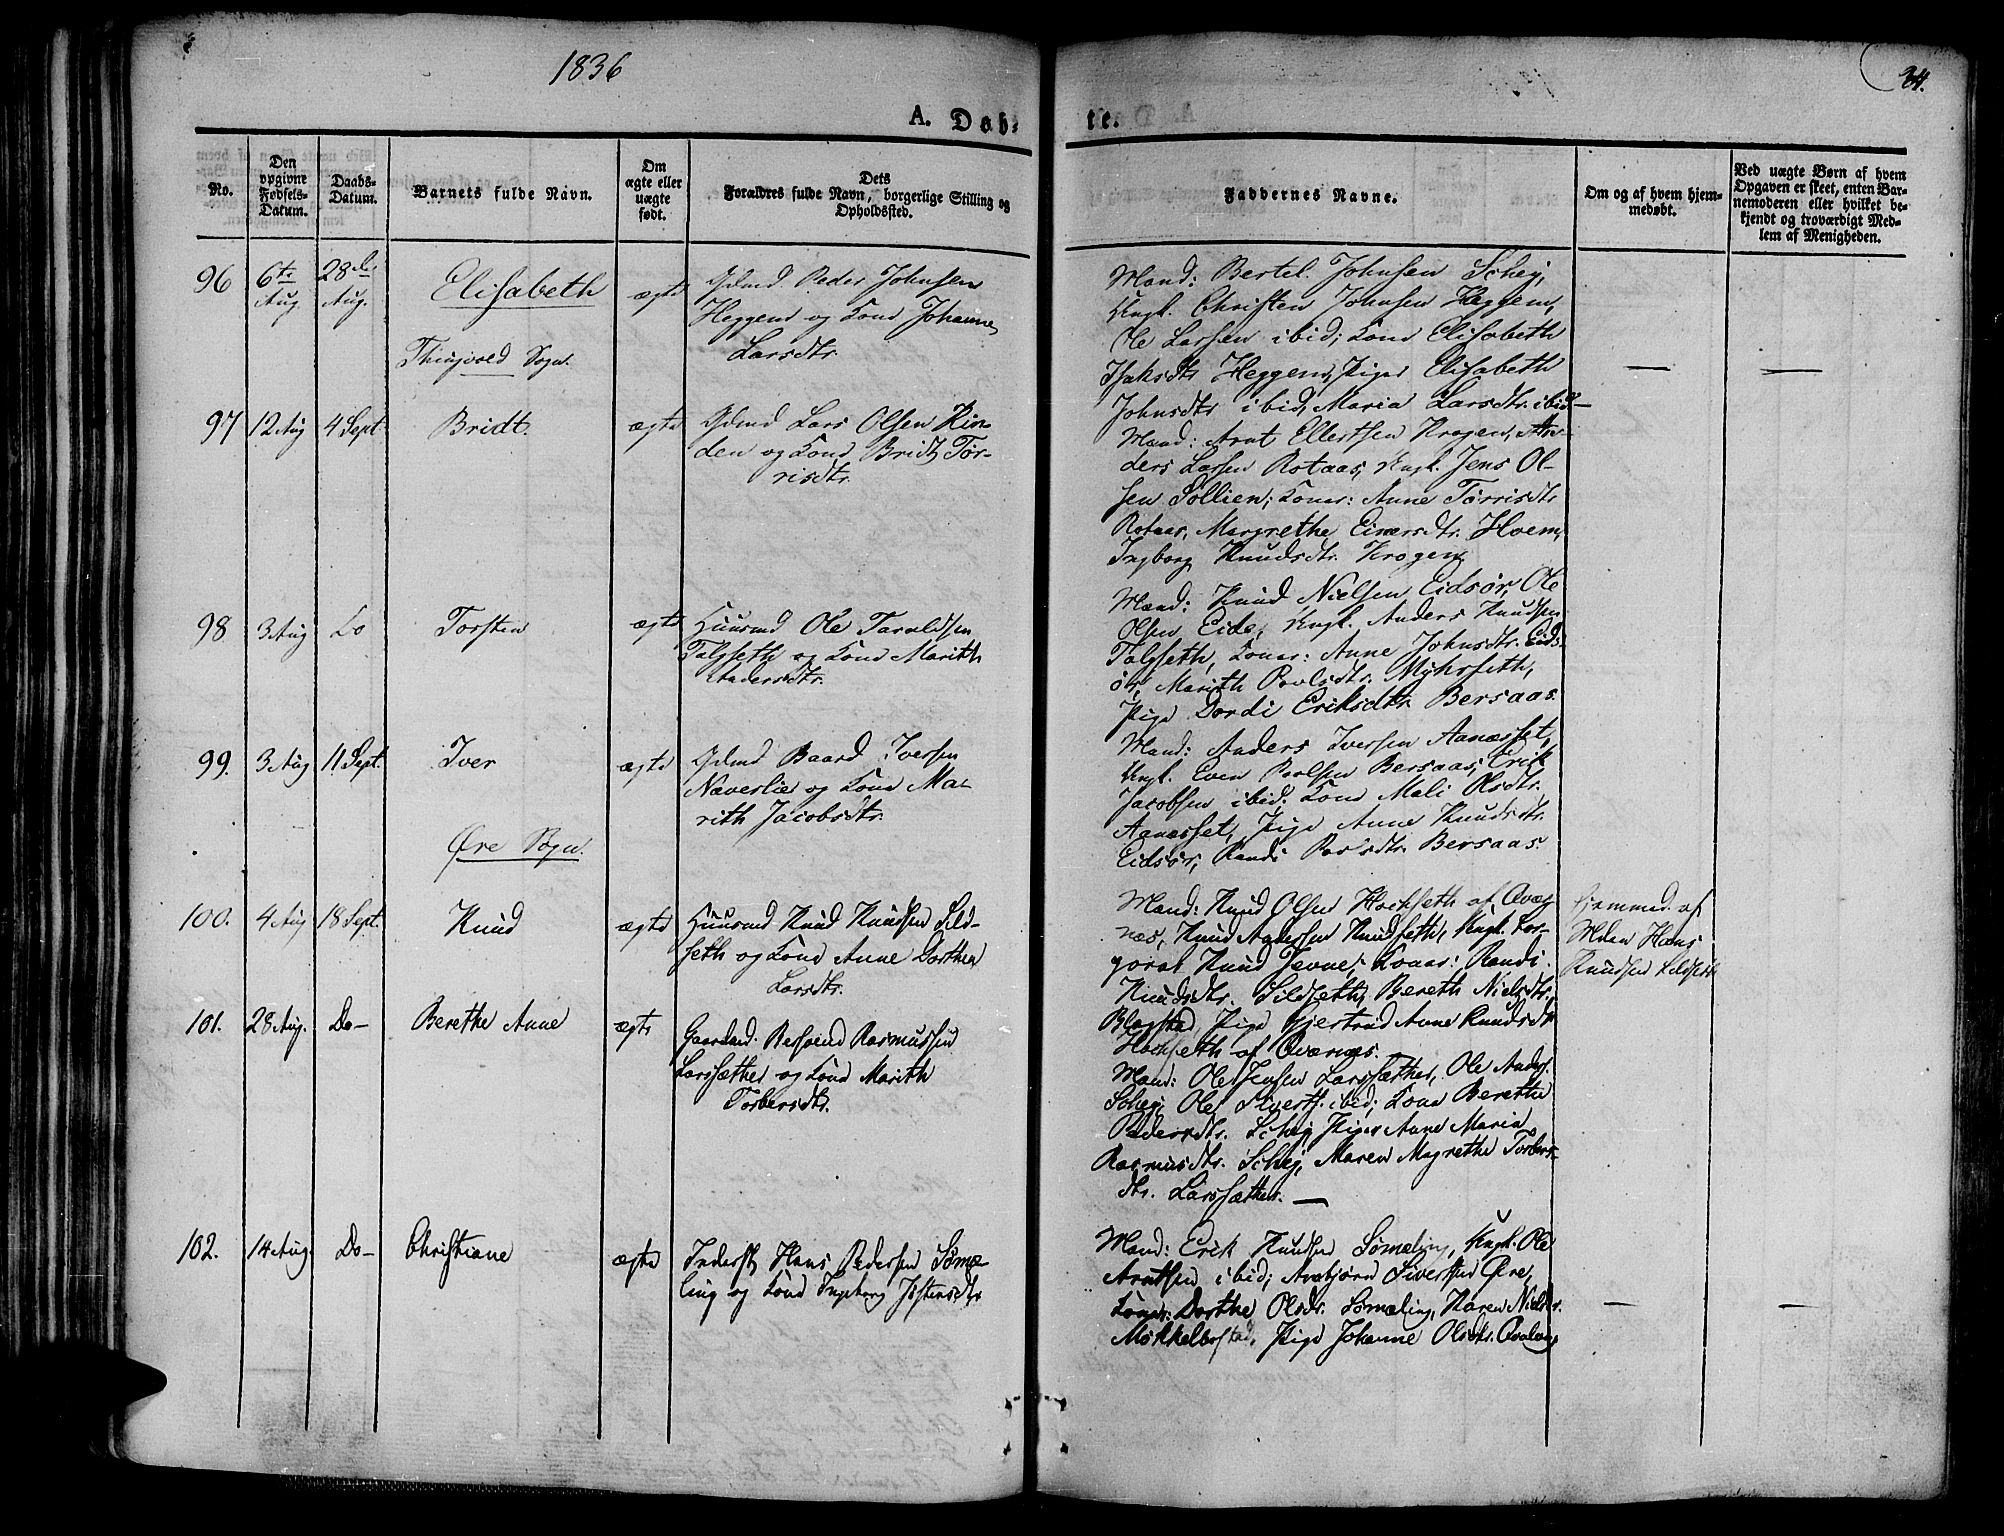 1836
34.
A. Døb-
te.
No.
Den
opgivne
Fødsels-
Datum.
Daabs-
Datum.
Barnets fulde Navn.
Om
ægte eller
uægte
født.
Dets
Forældres fulde Navn, borgerlige Stilling og
Opholdssted.
Faddernes Navne.
Om og af hvem hjem-
medøbt.
Ved uægte Børn af hvem
Opgaven er skeet, enten Bar-
nemoderen eller hvilket be-
kjendt og troværdigt Med-
lem af Menigheden.
96 6te Aug. 28de Aug. Elisabeth ægte
Gdmd Peder Johnsen
Heggem og Kone Johanne
Larsdtr.
Mænd: Bertel Johnsen Schei,
Ungk. Christen Johnsen Heggem,
Ole Larsen ibid; Kone Elisabeth
Isaksdtr Heggem, Piger Elisabeth
Johnsdtr ibid, Maria Larsdtr. ibid
Thingvold Sogn.
97 12 Aug 4 Sept. Bridt. ægte
Gdmd Lars Olsen Rin-
den og Kone Bridt Tør-
risdtr.
Mænd: Arnt Ellertsen Krogen, An-
ders Larsen Rotaas, Ungk. Jens Ol-
sen Sollien; Koner: Anne Tørrisdtr
Rotaas, Margrethe Einersdtr. Hoem,
Ingborg Knudsdtr. Krogen
98 3 Aug Do Torsten ægte
Huusmd Ole Taraldsen
Talgseth og Kone Marith
Andersdtr.
Mænd: Knud Nielsen Eidsør, Ole
Olsen Eide, Ungk. Anders Knudsen
Talgseth, Koner: Anne Johnsdtr. Eids-
ør, Marith Povlsdtr. Myhrseth,
Pige Dordi Eriksdtr. Bersaas.
99. 3 Aug 11 Sept. Iver ægte
Gdmd Baard Iversen
Næverlie og Kone Ma-
rith Jacobsdtr.
Mænd: Anders Iversen Aanæsset,
Ungk. Even Povlsen Bersaas, Erik
Jacobsen ibid; Kone Mali Olsdtr.
Aanæsset, Pige Anne Knudsdtr.
Eidsør, Randi Povlsdtr. Bersaas.
Øre Sogn.
100. 4 Aug 18 Sept. Knud ægte
Huusmd Knud Knudsen Sild-
seth og Kone Anne Dorthea
Larsdtr.
Mænd: Knud Olsen Hochseth af Qvær-
næs, Knud Andersen Knudseth, Ungk.
Knud Jevne; Koner: Randi
Knudsdtr. Sildseth, Bereth Nielsdtr.
Blagstad, Pige Gjertrud Anne Knudsdtr
Hochseth af Qværnæs.
Hjemmed. af
Hans
Knudsen Sildseth
101. 28 Aug. Do- Berethe Anne ægte
Gaardmd. Rasmussen
Larssæther og Kone Marith
Torbersdtr.
Mænd: Ole Jensen Larssæther, Ole Anders.
Schei, Ole Siverts. ibid; Kone Berethe
Pedersdtr. Schei, Piger Anne Maria
Rasmusdtr. Schei, Maren Magrethe Torbers-
dtr. Larssæther. —
102. 14 Aug. Do- Christiane ægte
Inderst Hans Pedersen Sømæ-
ling og Kone Ingeborg Jostensdtr
Mænd: Erik Knudsen Sømæling, Ungk. Ole
Arntsen ibid; Arnbjørn Sivertsen Øre,
Koner: Dorthe Olsdtr. Sømæling, Karen Nielsdtr.
Mekkelbostad, Pige Johanne Olsdtr.